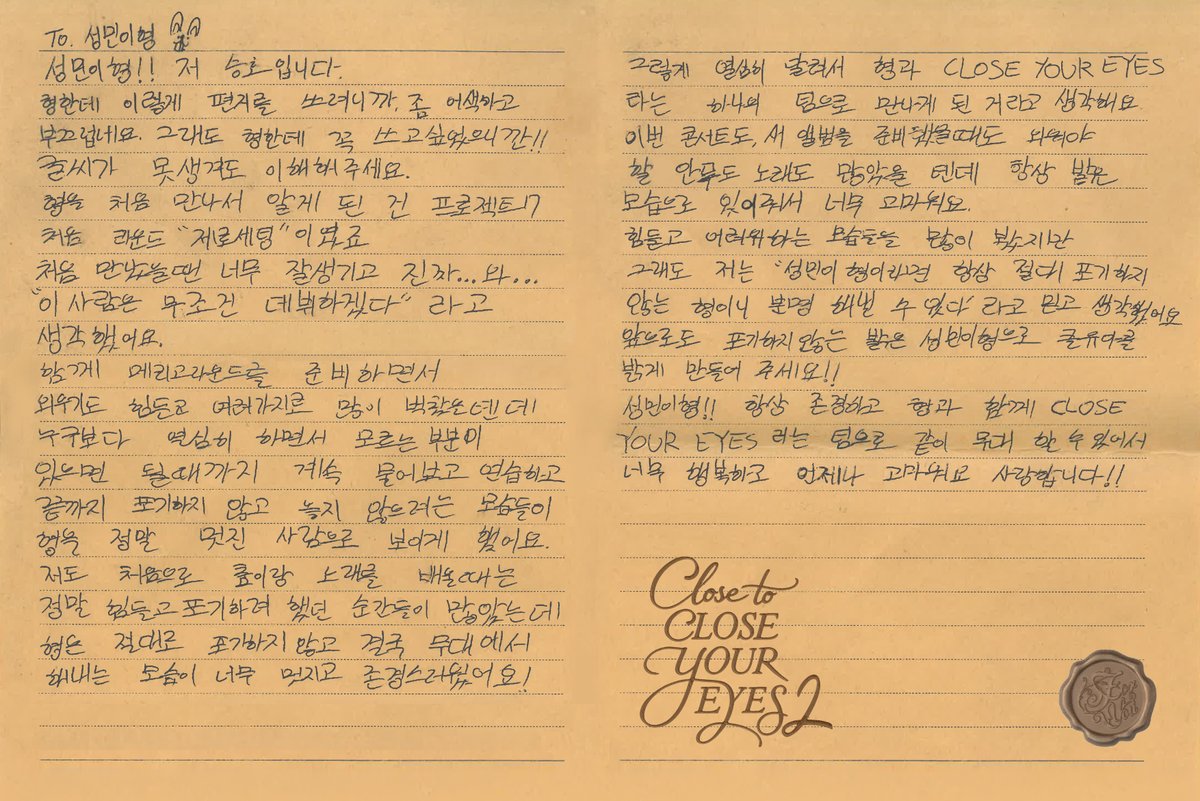 To. 성민이형
성민이형!! 저 승호입니다.
형한테 이렇게 편지를 쓰려니까, 좀 어색하고
부끄럽네요. 그래도 형한테 꼭 쓰고싶었으니깐!!
글씨가 못생겨도 이해해주세요.
형을 처음 만나서 알게 된 건 프로젝트7
처음 라운드 "제로세팅"이였죠
처음 만났을때 너무 잘생기고 진짜...와...
"이 사람은 무조건 데뷔하겠다" 라고
생각했어요.
함께 메리고라운드를 준비하면서
외우기도 힘들고 여러가지로 많이 벅찼을텐데
누구보다 열심히 하면서 모르는 부분이
있으면 될때까지 계속 물어보고 연습하고
끝까지 포기하지 않고 놓지 않으려는 모습들이
형을 정말 멋진 사람으로 보이게 했어요.
저도 처음으로 춤이랑 노래를 배울때는
정말 힘들고 포기하려 했던 순간들이 많았는데
형은 절대로 포기하지 않고 결국 무대에서
해내는 모습이 너무 멋지고 존경스러웠어요!
그렇게 열심히 달려서 형과 CLOSE YOUR EYES
라는 하나의 팀으로 만나게 된 거라고 생각해요
이번 콘서트도, 새 앨범을 준비했을때도 외워야
할 안무도 노래도 많았을 텐데 항상 밝은
모습으로 있어줘서 너무 고마워요.
힘들고 어려워하는 모습들을 많이 봤지만
그래도 저는 "성민이 형이라면 항상 절대 포기하지
않는 형이니 분명 해낼 수 있다" 라고 믿고 생각했어요
앞으로도 포기하지 않는 밝은 성민이형으로 클유아를
밝게 만들어 주세요!!
성민이형!! 항상 존경하고 형과 함께 CLOSE
YOUR EYES 라는 팀으로 같이 무대 할 수 있어서
너무 행복하고 언제나 고마워요 사랑합니다!!
Close to
CLOSE
YOUR
EYES 2